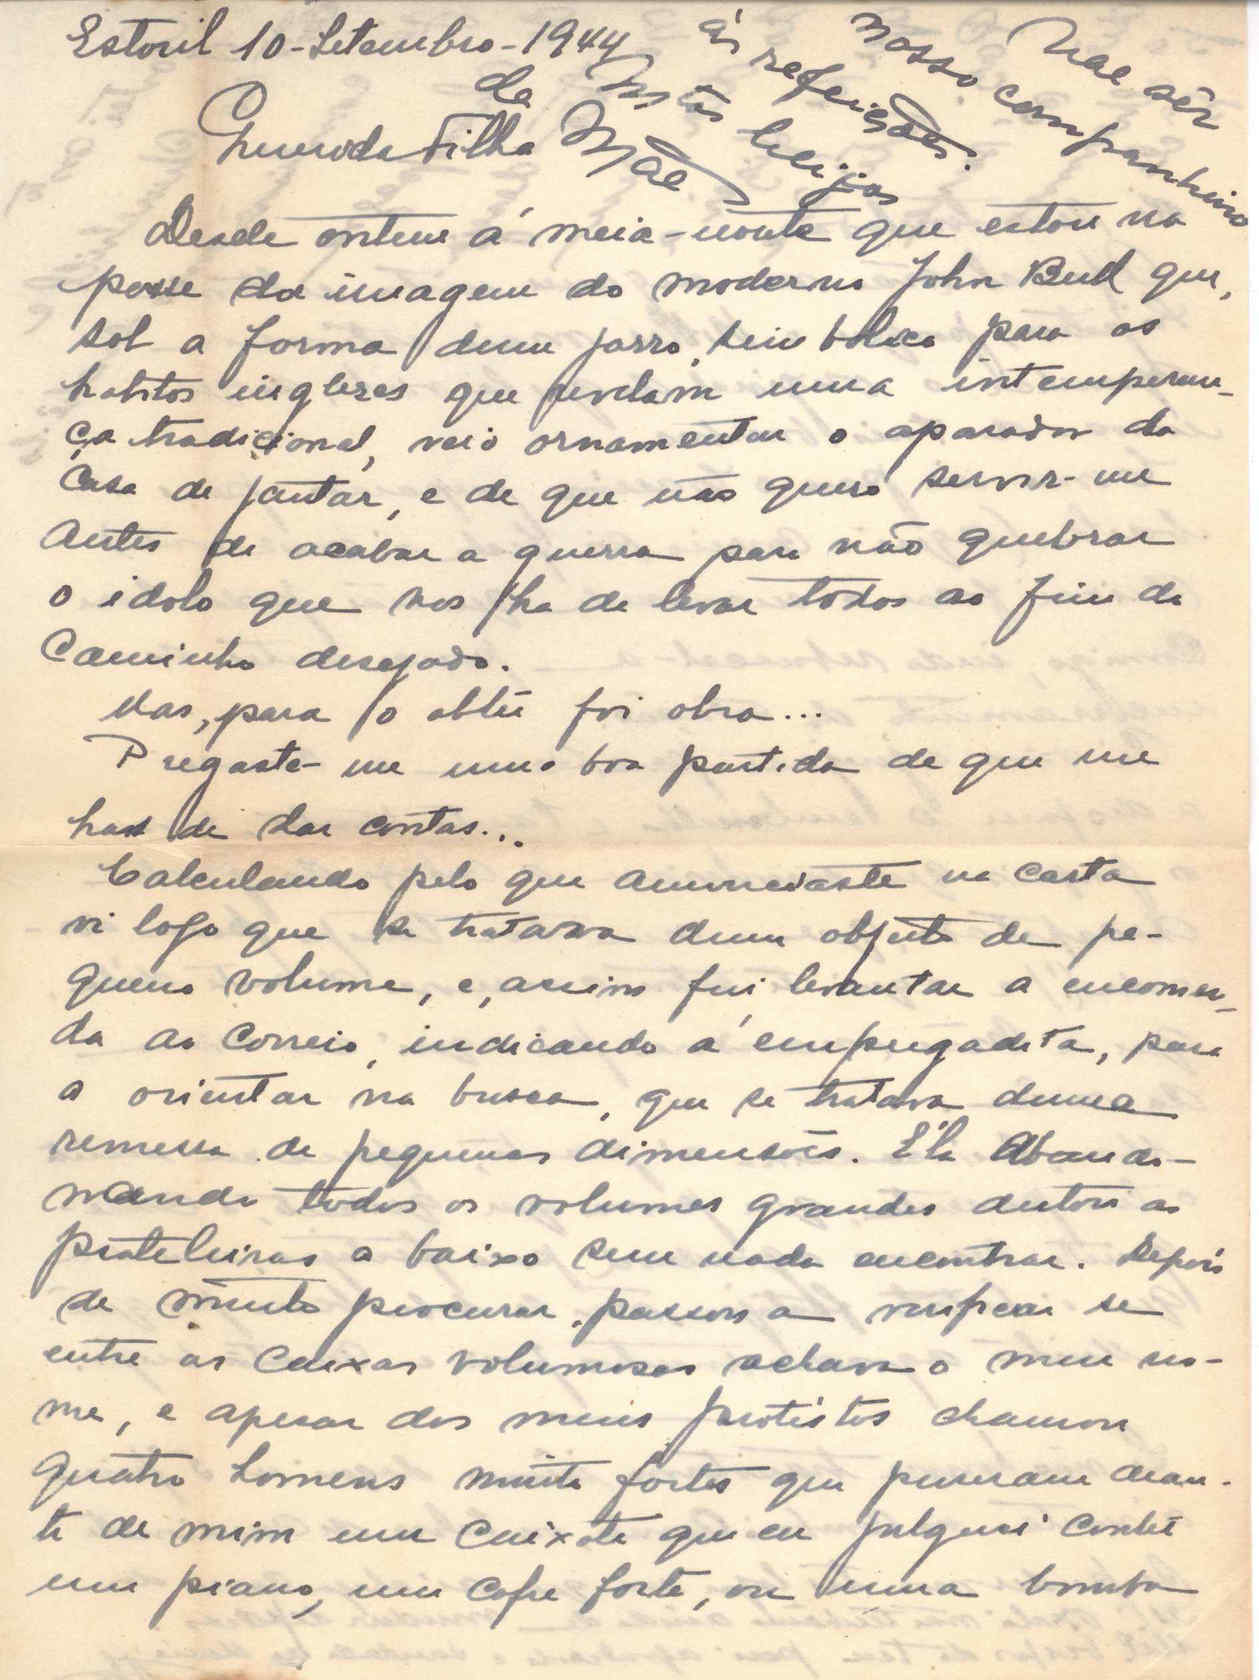 Estoril 10-Setembro-1944
Querida Filha
Vae sêr
nosso companheiro
ás refeições.
Muitos beijos
da
Mãe
Desde ontem á meia-noute que estou na
posse da imagem do moderno John Bull que,
sob a forma dum jarro, simbolico para os
habitos inglezes que revelam uma intemperan-
ça tradicional, veio ornamentar o aparador da
casa de jantar, e de que não quero servir-me
antes de acabar a guerra para não quebrar
o idolo que nos ha de levar todos ao fim do
caminho desejado.
Mas, para o obtêr foi obra...
Pregaste-me uma boa partida de que me
has de dar contas...
Calculando pelo que anunciaste na carta
vi logo que se tratava dum objecto de pe-
queno volume, e, assim fui levantar a encomen-
da ao correio, indicando á empregadita, para
a orientar na busca, que se tratava duma
remessa de pequenas dimensões. Ela abando-
nando todos os volumes grandes deitou as
prateleiras a baixo sem nada encontrar. Depois
de muito procurar, passou a verificar se
entre as caixas volumosas achava o meu no-
me, e apesar dos meus protéstos chamou
quatro homens muito fortes que puseram dean-
te de mim um caixote que eu julguei contêr
um piano, um cofre forte, ou uma bomba